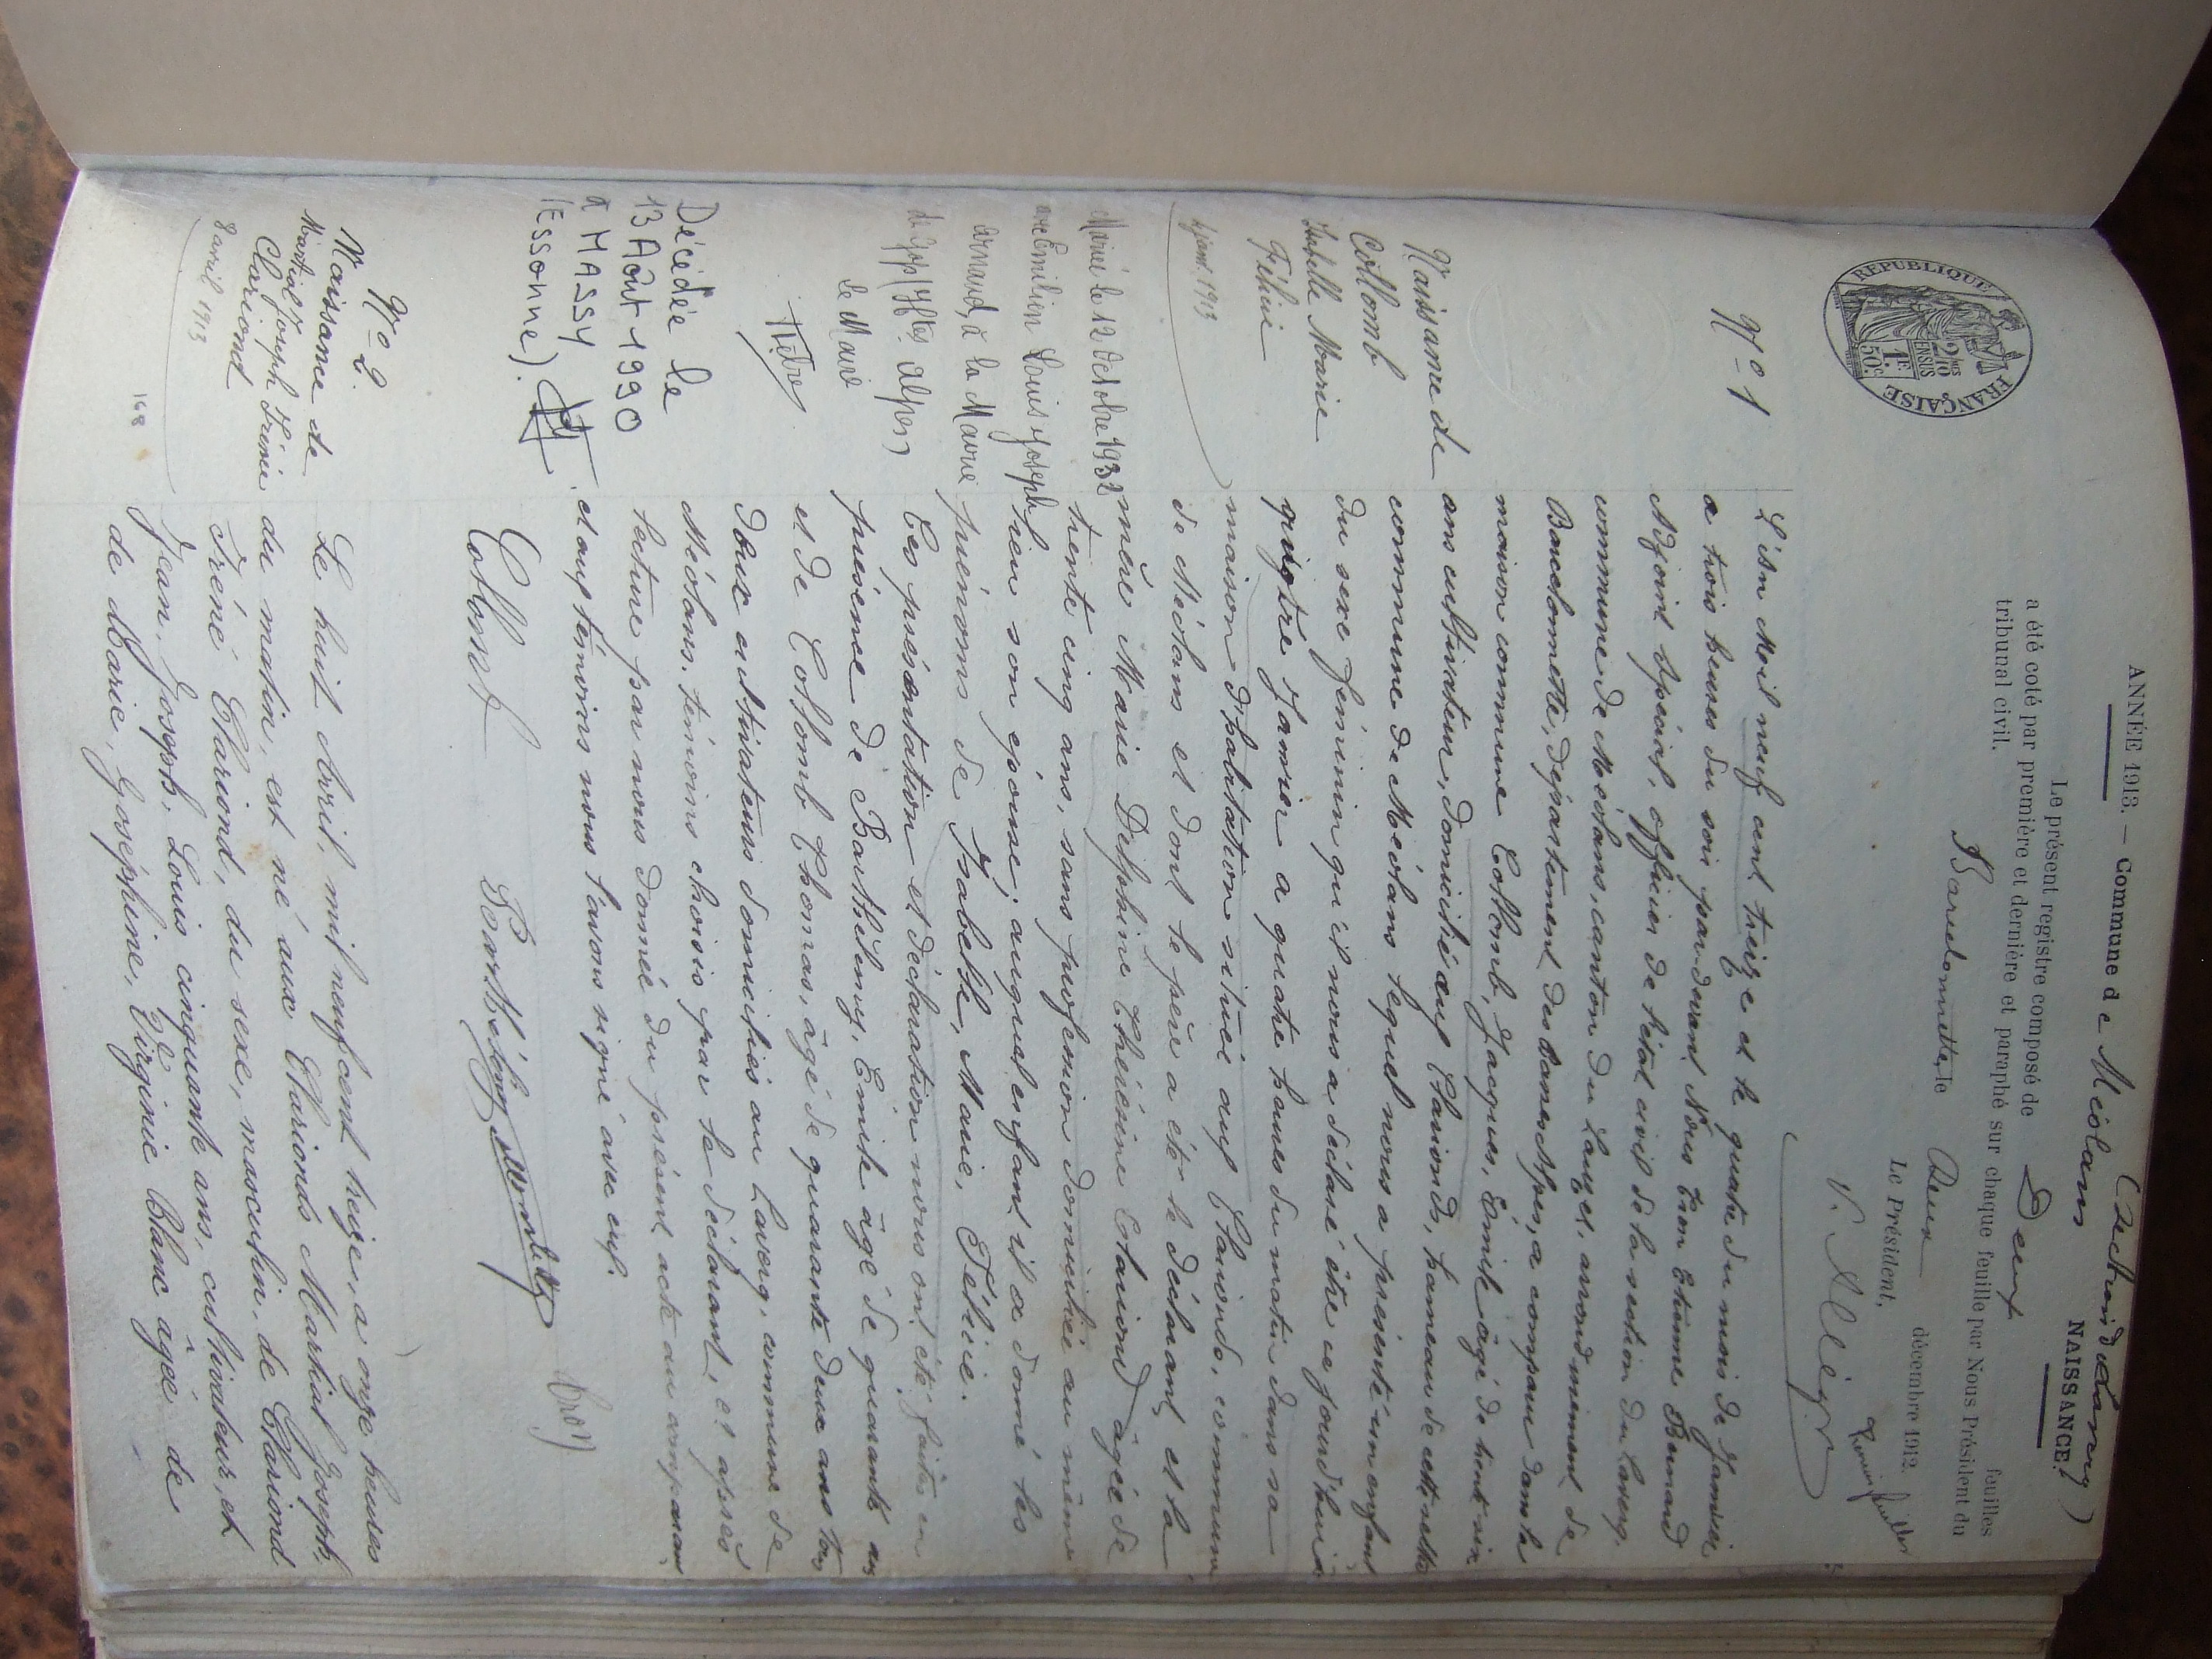 (section de Laverq)
ANNÉE 1913. — Commune de Méolans
NAISSANCE.
Le présent registre composé de Deux feuilles
a été coté par première et dernière et paraphé sur chaque feuille par Nous Président du
tribunal civil.
Barcelonnette, le Deux décembre 1912.
Le Président,
REPUBLIQUE FRANÇAISE
2/10 EN SUS
1F 50c
N° 1
Naissance de
Collomb
Isabelle Marie
Félicie
4 janv. 1913
Mariée le 12 Octobre 1932
avec Emilien Louis Joseph
Arnaud, à la Mairie
de Gap (Htes Alpes)
Le Maire
Décédée le
13 Août 1990
à MASSY
(ESSONNE).
L'an Mil neuf cent treize et le quatre du mois de Janvier
a trois heures du soir par-devant Nous Tron Etienne Bernard
Adjoint spécial, officier de l'état civil de la section du Laverq,
commune de Méolans, canton du Lauzet, arrondissement de
Barcelonnette, département des Basses Alpes, a comparu dans la
maison commune Collomb, Jacques, Emile âgé de trente six
ans cultivateur, domicilié aux Clarionds, hameau de cette dite
commune de Méolans lequel nous a présenté un enfant
du sexe féminin qu'il nous a déclaré être ce jourd'hui
quatre Janvier a quatre heures du matin dans sa
maison d'habitation située aux Clarionds, commune
de Méolans et dont le père a été le déclarant et la
mère Marie Delphine Thérésine Clariond âgée de
trente cinq ans, sans profession domiciliée au même
lieu son épouse; auquel enfant il a donné les
prénoms de Isabelle, Marie, Félicie.
Les présentation et déclaration nous ont été faites en
présence de Barthélemy, Emile âgé de quarante ans
et de Collomb Thomas, âgé de quarante deux ans tous
deux cultivateurs domiciliés au Laverq, commune de
Méolans. témoins choisis par le déclarant, et après
lecture par nous donnée du présent acte au comparant
et aux témoins nous l'avons signé avec eux.
Collomb Barthélemy Tron
N° 2.
Naissance de
Martial Joseph Irénée
Clariond
8 avril 1913
168
Le huit Avril, mil neuf cent treize, a onze heures
du matin, est né aux Clarionds Martial Joseph,
Iréné Clariond, du sexe, masculin, de Clariond
Jean, Joseph, Louis cinquante ans, cultivateur, et
de Marie, Joséphine, Virginie Blanc âgée de